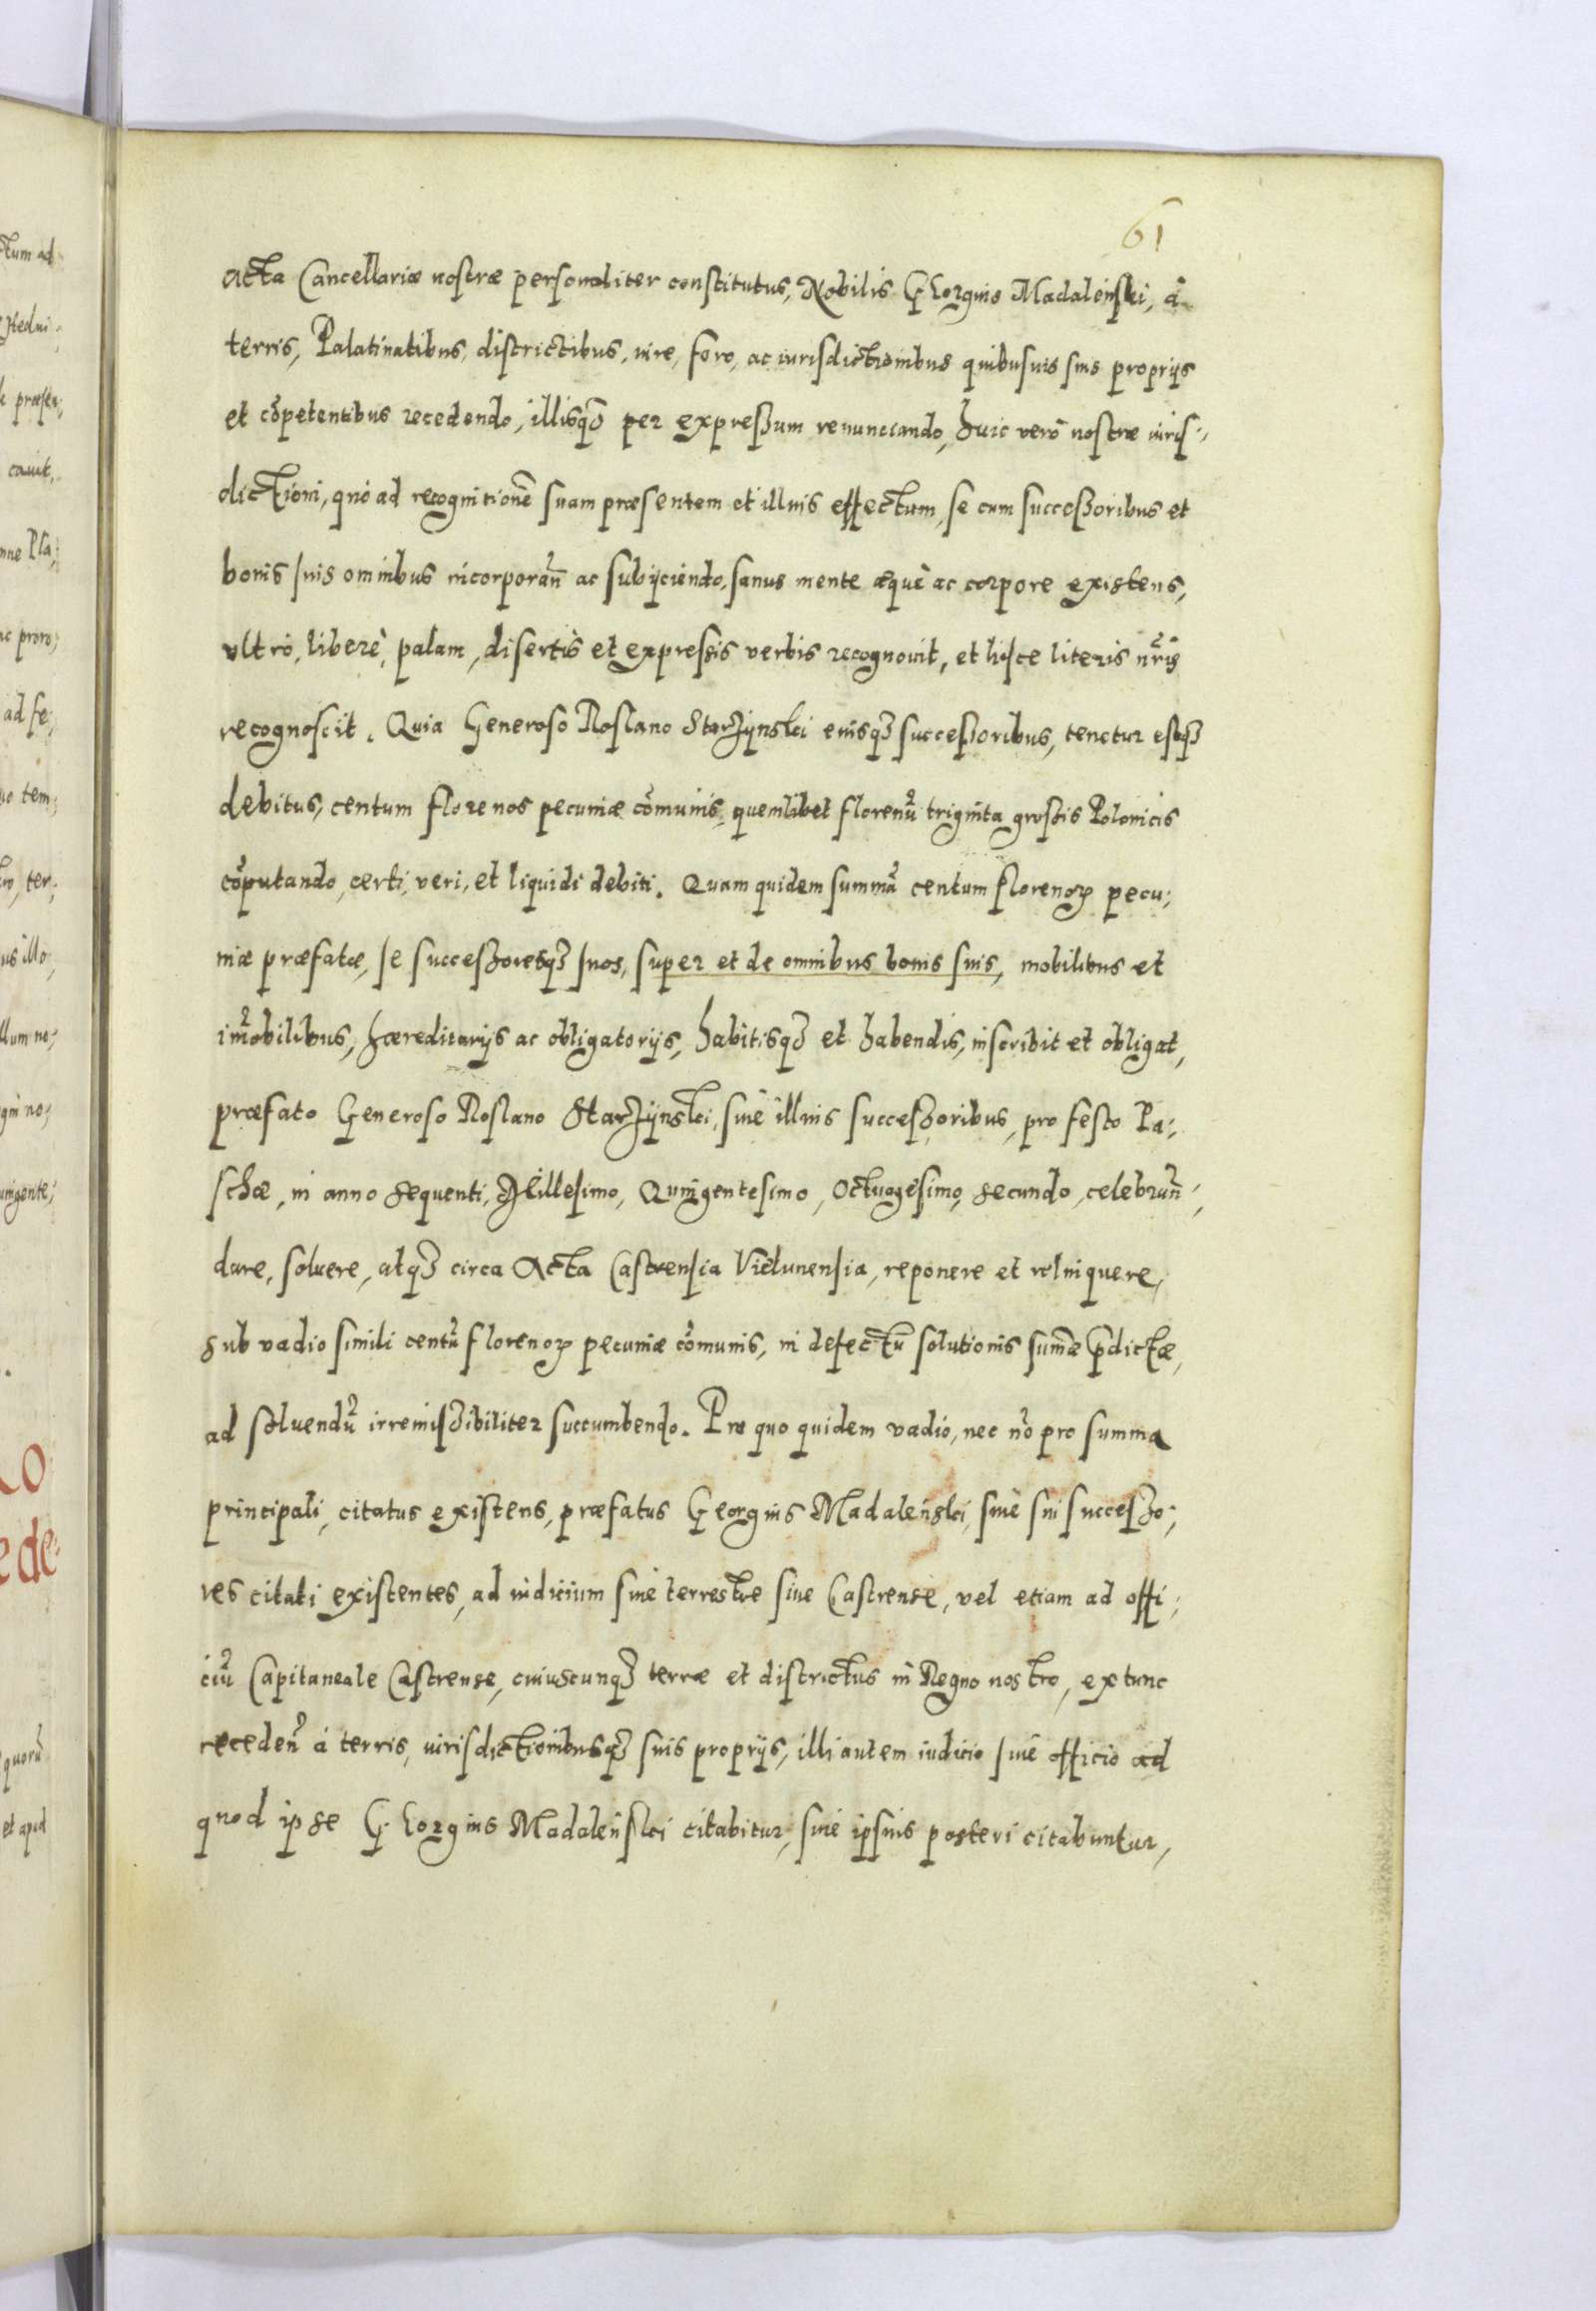 61
Acta Cancellariæ nostræ personaliter constitutus, Nobilis Georgius Madalenski, à
terris, Palatinatibus, districtibus, iure, foro, ac iurisdictionibus quibusuis suis proprijs
et cōpetentibus recedendo, illisqꝫ per expressum renunciando, huic verò nostræ iuris-
dictioni, quò ad recognitionē suam præsentem et illius effectum, se cum successoribus et
bonis suis omnibus incorporan̄ ac subijciendo, sanus mente æquè ac corpore existens,
vltrò, liberè, palam, disertis et expressis verbis recognouit, et hisce literis nr̄is
recognoscit. Quia Generoso Roslano Starzijnski eiusqꝫ successoribus, tenetur estqꝫ
debitus, centum florenos pecuniæ cōmunis, quemlibet florenū triginta grossis Polonicis
cōputando, certi, veri, et liquidi debiti. Quam quidem summā centum florenoꝝ pecu;
niæ præfatæ, se successoresqꝫ suos, super et de omnibus bonis suis, mobilibus et
im̄obilibus, hæreditarijs ac obligatorijs, habitisqꝫ et habendis, inscribit et obligat,
præfato Generoso Roslano Starzijnski, siuè illius successoribus, pro festo Pa;
schæ, in anno sequenti, Millesimo, Quingentesimo, Octuagesimo, secundo, celebran̄,
dare, soluere, atqꝫ circa Acta Castrensia Vielunensia, reponere et relinquere,
sub vadio simili centū florenoꝝ pecuniæ cōmunis, in defectū solutionis sum̄æ p̄dictæ,
ad soluendū irremissibiliter succumbendo. Pro quo quidem vadio, nec nō pro summa
principali, citatus existens, præfatus Georgius Madalenski, siuè sui successo;
res citati existentes, ad iudicium siuè terrestre siue Castrense, vel etiam ad offi;
ciū Capitaneale Castrense, cuiuscunqꝫ terræ et districtus in Regno nostro, ex tunc
receden̄ à terris, iurisdictionibusqꝫ suis proprijs, illi autem iudicio siuè officio ad
quod ipse Georgius Madalenski citabitur, siuè ipsius posteri citabuntur,